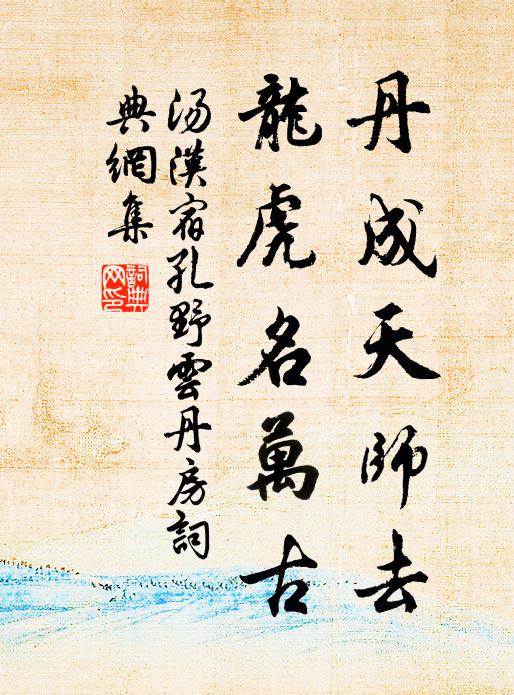 丹成天師去
龍虎名萬古
湯漢宿孔野雲丹房詞
典網集
詞典網印